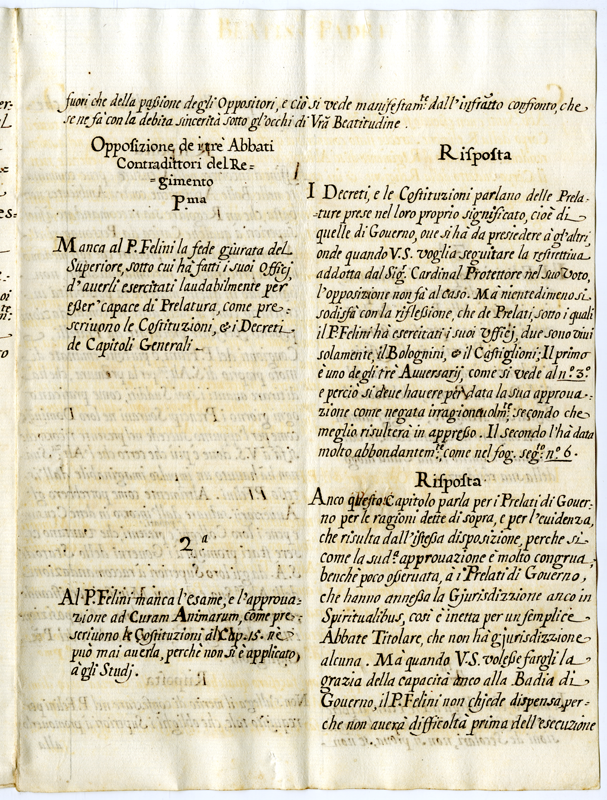 fuori che della passione degli Oppositori, e ciò si vede manifestamte. dall'infratto confronto, che
se ne fà con la debita sincerità sotto gl'occhi di Vra Beatitudine.
Opposizione de i trè Abbati
Contradittori del Re=
=gimento
P.ma
Manca al P. Felini la fede giurata del
Superiore, sotto cui hà fatti i suoi Officj,
d'averli esercitati laudabilmente per
esser' capace di Prelatura, come pre=
scrivono le Costituzioni, & i Decreti
de Capitoli Generali.
2.a
Al P. Felini manca l'esame, e l'approva=
zione ad Curam Animarum, come pre=
scrivono le Costituzioni al Cap. 15. nè
può mai averla, perchè non si è applicato
à gli Studj.
Risposta
I Decreti, e le Costituzioni parlano delle Prela=
=ture prese nel loro proprio significato, cioè di
quelle di Governo, ove si hà da presiedere à gl'altri,
onde quando V.S. voglia seguitare la restrettiva
addotta dal Sig. Cardinal Protettore nel suo Voto,
l'opposizione non fà al caso. Mà nientedimeno si
sodisfà con la riflessione, che de Prelati, sotto i quali
il P. Felini hà esercitati i suoi Vfficj, due sono vivi
solamente, il Bolognini, & il Castiglioni; Il primo
è uno degli tre Avversarij, come si vede al n.o 3.o
e perciò si deve havere per data la sua approva=
=zione come negata irragionevolmte. secondo che
meglio risulterà in appresso. Il secondo l'hà data
molto abbondantemte., come nel fog. seg.e n.o 6.
Risposta
Anco questo Capitolo parla per i Prelati di Gover=
no per le ragioni dette di sopra, e per l'evidenza,
che risulta dall'istessa disposizione, perche si
come la sud.a approvazione è molto congrua,
benchè poco osservata, a i Prelati di Governo,
che hanno annessa la Gjurisdizzione anco in
Spiritualibus, così è inetta per un semplice
Abbate Titolare, che non hà gjurisdizzione
alcuna. Mà quando V.S. volesse fargli la
grazia della capacità anco alla Badia di
Governo, il P. Felini non chjede dispensa, per=
che non averà difficoltà prima dell'esecuzione